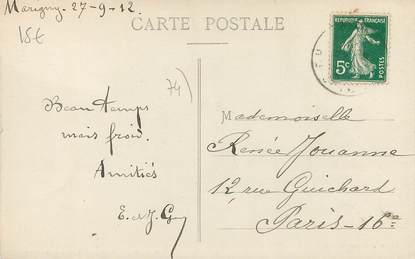 Marigny - 27-9-12
CARTE POSTALE
15€
74)
RÉPUBLIQUE FRANÇAISE
5c
POSTES
Beau temps
mais froid.
Amitiés
E. et J.
Mademoiselle
Renée Jouanne
12, rue Guichard
Paris - 16